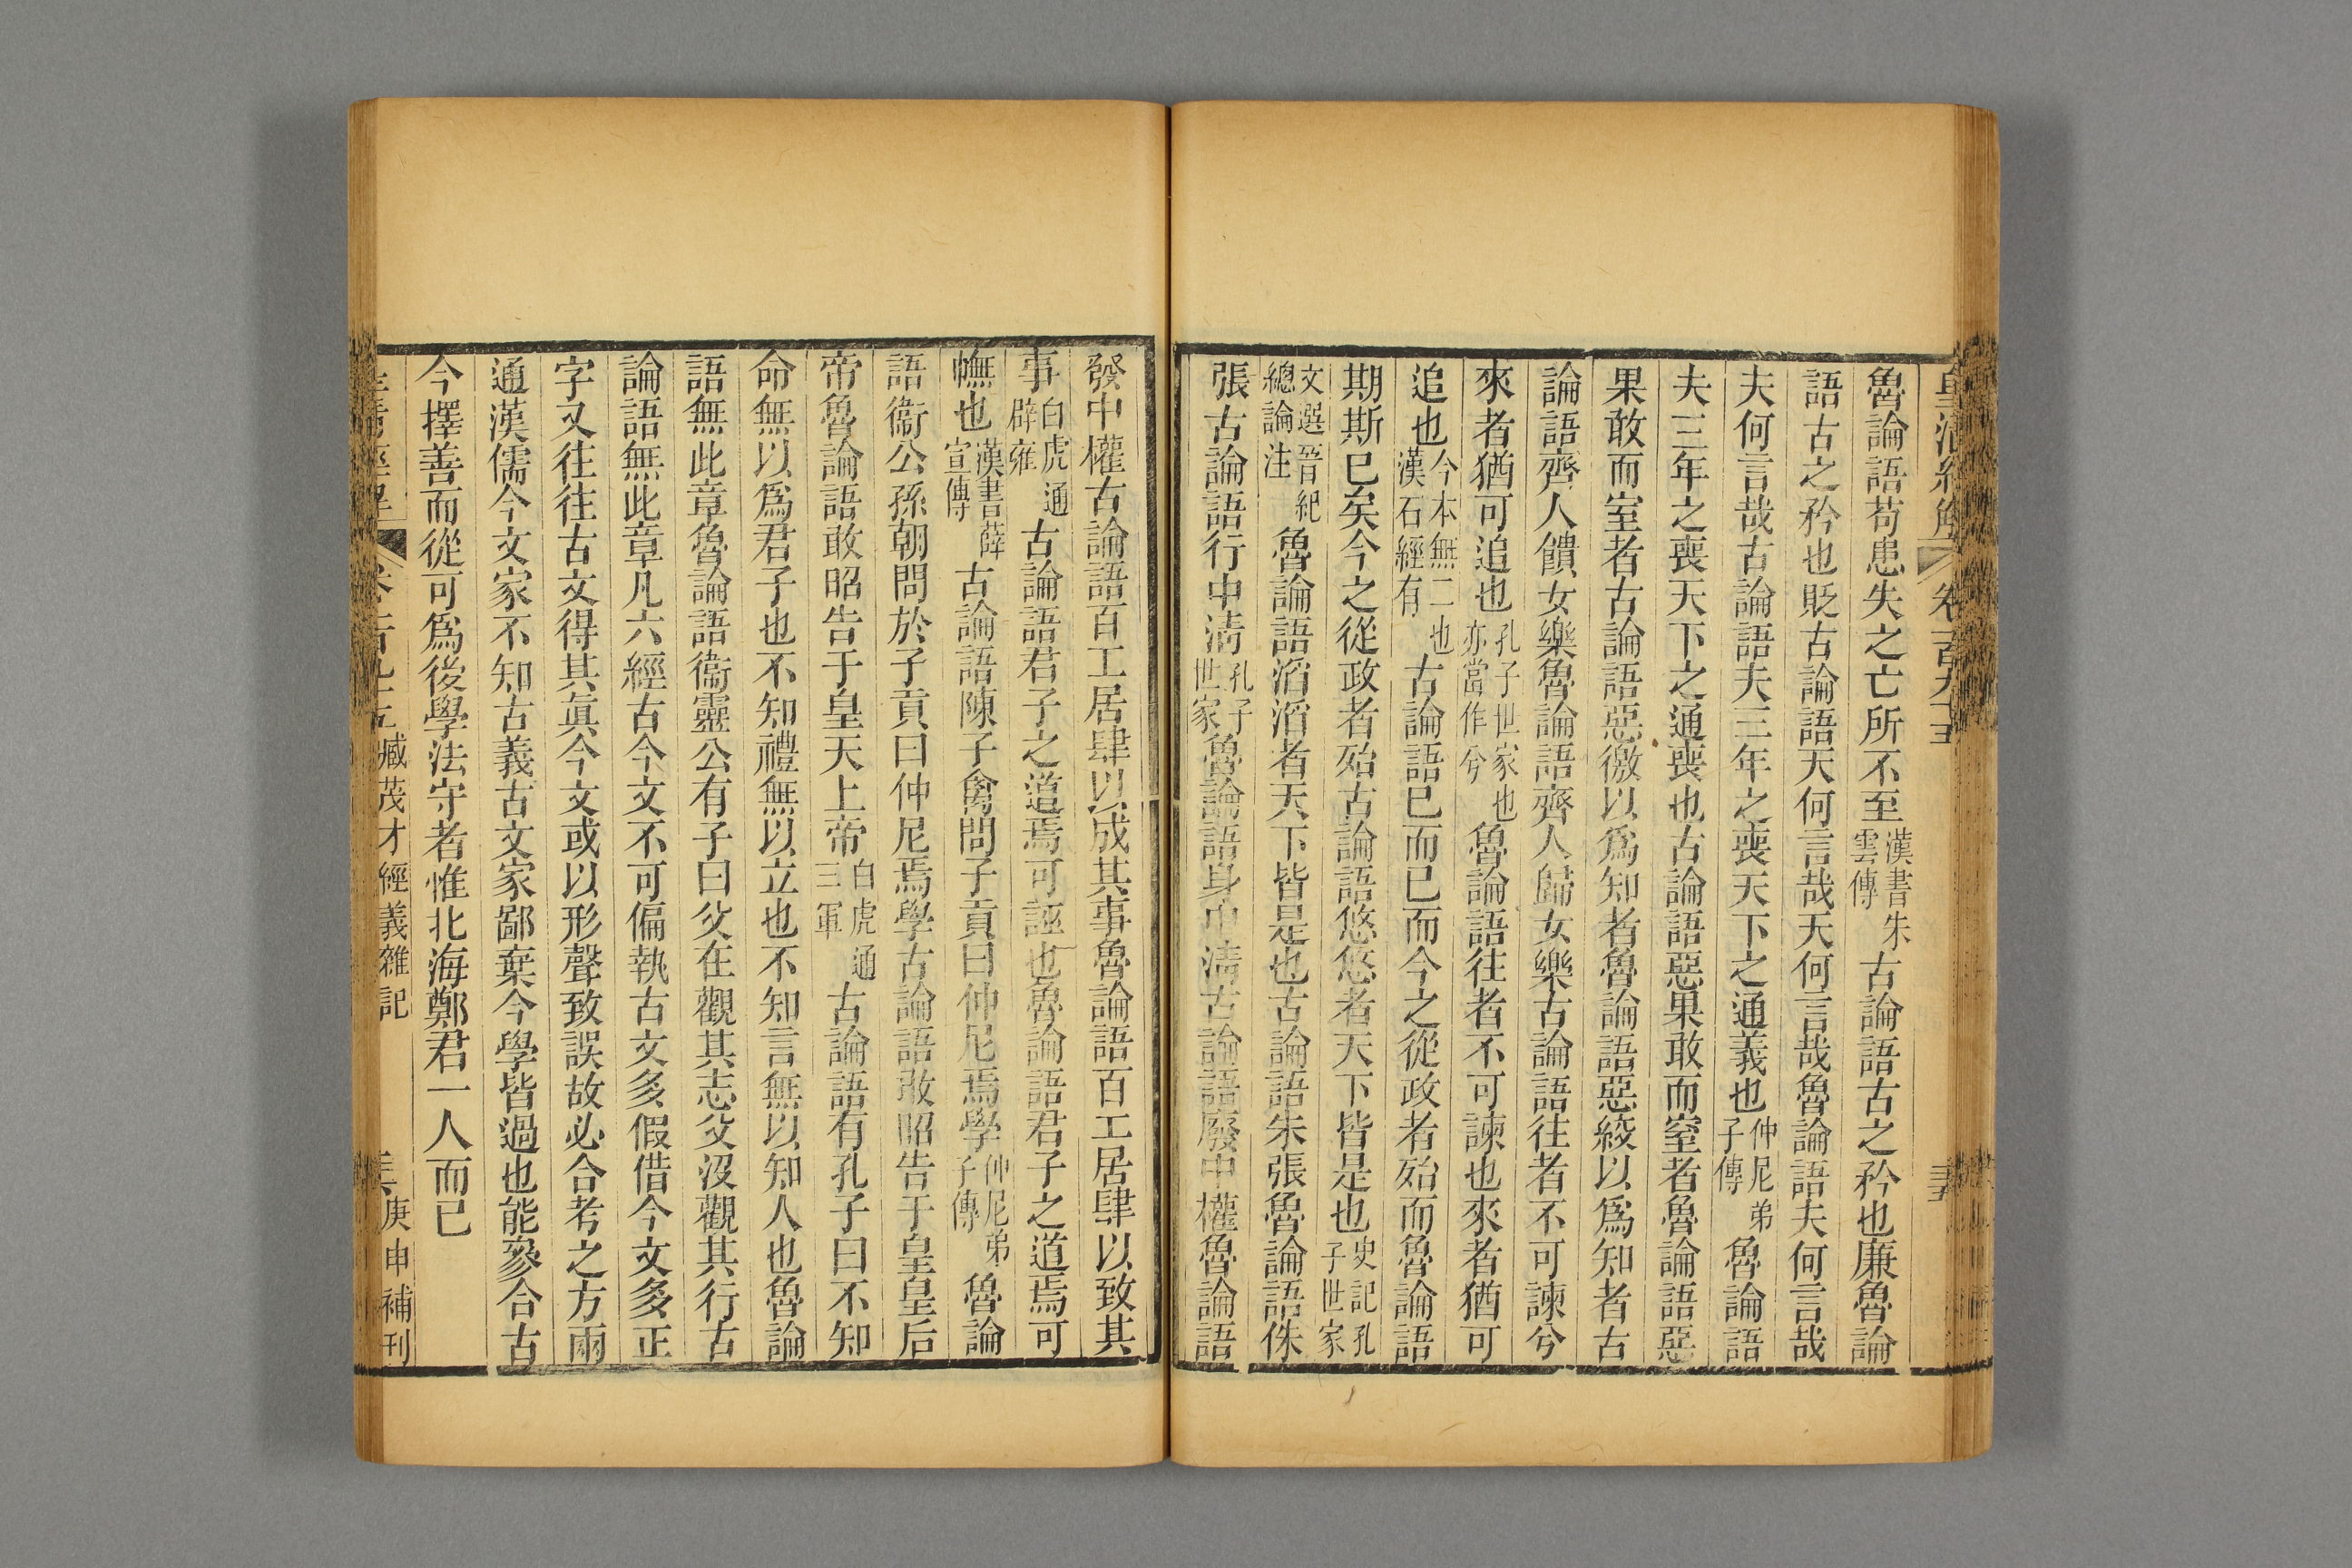 皇清經解 卷一百九十五
魯論語苟患失之亡所不至漢書朱雲傳古論語古之矜也廉魯論
語古之矜也貶古論語天何言哉天何言哉魯論語夫何言哉
夫何言哉古論語夫三年之喪天下之通義也仲尼弟子傳魯論語
夫三年之喪天下之通喪也古論語惡果敢而窒者魯論語惡
果敢而室者古論語惡徼以爲知者魯論語惡絞以爲知者古
論語齊人饋女樂魯論語齊人歸女樂古論語往者不可諫兮
來者猶可追也孔子世家也亦當作兮魯論語往者不可諫也來者猶可
追也今本無二也漢石經有古論語已而已而今之從政者殆而魯論語
期斯已矣今之從政者殆古論語悠悠者天下皆是也史記孔子世家
文選晉紀總論注魯論語滔滔者天下皆是也古論語朱張魯論語侏
張古論語行中清孔子世家魯論語身中清古論語廢中權魯論語
發中權古論語百工居肆以成其事魯論語百工居肆以致其
事白虎通辟雍古論語君子之道焉可誣也魯論語君子之道焉可
憮也漢書薛宣傳古論語陳子禽問子貢曰仲尼焉學仲尼弟子傳魯論
語衞公孫朝問於子貢曰仲尼焉學古論語敢昭告于皇皇后
帝魯論語敢昭告于皇天上帝白虎通三軍古論語有孔子曰不知
命無以爲君子也不知禮無以立也不知言無以知人也魯論
語無此章魯論語衞靈公有子曰父在觀其志父沒觀其行古
論語無此章凡六經古今文不可偏執古文多假借今文多正
字又往往古文得其眞今文或以形聲致誤故必合考之方兩
通漢儒今文家不知古義古文家鄙棄今學皆過也能參合古
今擇善而從可爲後學法守者惟北海鄭君一人而已
臧茂才經義雜記 庚申補刊